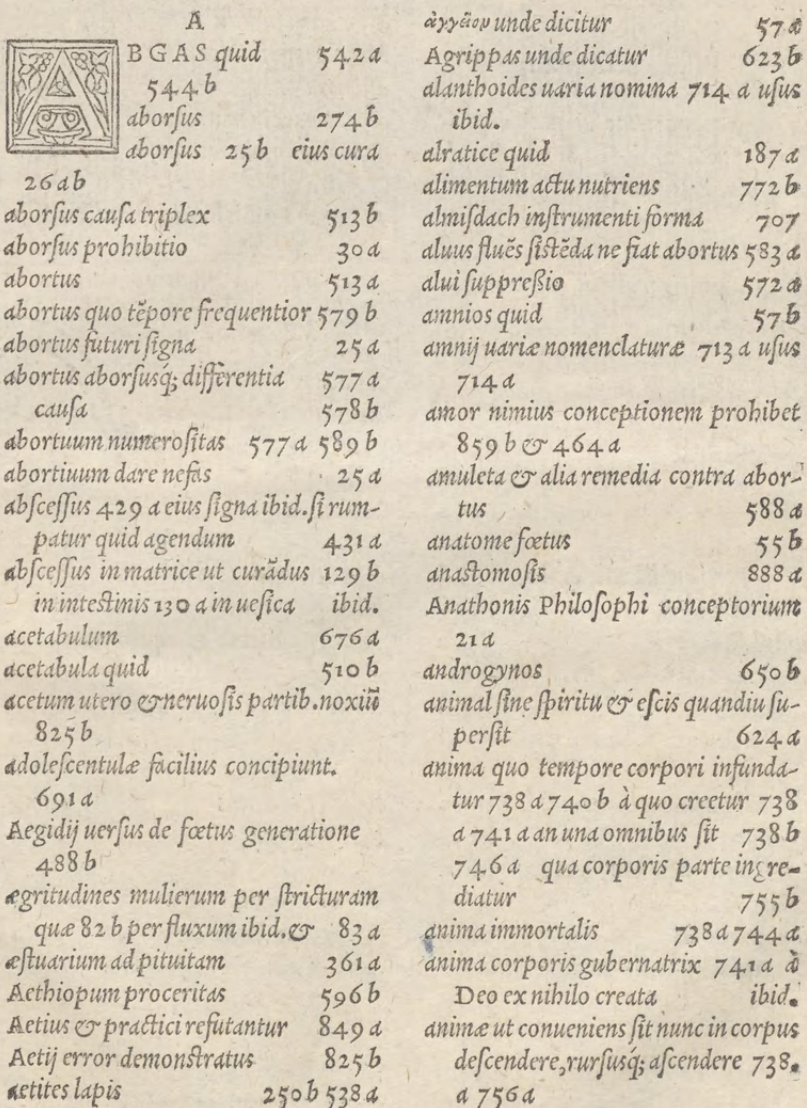 A
ABGAS quid 542 a
544 b
aborſus 274 b
aborſus 25 b eius cura
26 a b
aborſus cauſa triplex 513 b
aborſus prohibitio 30 a
abortus 513 a
abortus quo tẽpore frequentior 579 b
abortus futuri ſigna 25 a
abortus aborſusq́; differentia 577 a
cauſa 578 b
abortuum numeroſitas 577 a 589 b
abortiuum dare nefas 25 a
abſceſſus 429 a eius ſigna ibid. ſi rum-
patur quid agendum 431 a
abſceſſus in matrice ut curãdus 129 b
in inteſtinis 130 a in ueſica ibid.
acetabulum 676 a
acetabula quid 510 b
acetum utero & neruoſis partib. noxiũ
825 b
adoleſcentulæ facilius concipiunt.
691 a
Aegidij uerſus de fœtus generatione
488 b
ægritudines mulierum per ſtricturam
quæ 82 b per fluxum ibid. & 83 a
æſtuarium ad pituitam 361 a
Aethiopum proceritas 596 b
Aetius & practici refutantur 849 a
Aetij error demonſtratus 825 b
aetites lapis 250 b 538 a
ἀγγεῖον unde dicitur 57 a
Agrippas unde dicatur 623 b
alanthoides uaria nomina 714 a uſus
ibid.
alratice quid 187 a
alimentum actu nutriens 772 b
almiſdach inſtrumenti forma 707
aluus fluẽs ſiſtẽda ne fiat abortus 583 a
alui ſuppreßio 572 a
amnios quid 57 b
amnij uariæ nomenclaturæ 713 a uſus
714 a
amor nimius conceptionem prohibet
859 b & 464 a
amuleta & alia remedia contra abor-
tus 588 a
anatome fœtus 55 b
anaſtomoſis 888 a
Anathonis Philoſophi conceptorium
21 a
androgynos 650 b
animal ſine ſpiritu & eſcis quandiu ſu-
perſit 624 a
anima quo tempore corpori infunda-
tur 738 a 740 b à quo creetur 738
a 741 a an una omnibus ſit 738 b
746 a qua corporis parte ingre-
diatur 755 b
anima immortalis 738 a 744 a
anima corporis gubernatrix 741 a à
Deo ex nihilo creata ibid.
animæ ut conueniens ſit nunc in corpus
deſcendere, rurſusq́; aſcendere 738.
a 756 a